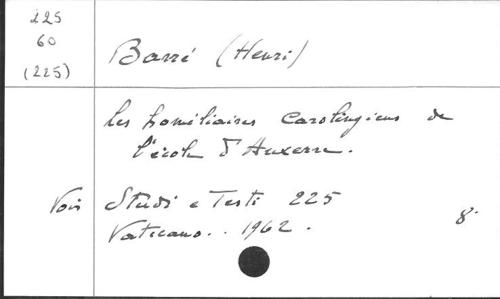 225
60
(225)
Barré (Henri)
Les homéliaires Carolingiens de
l'école d'Auxerre.
Voir Studi e Testi 225
Vaticano.. 1962.
8°